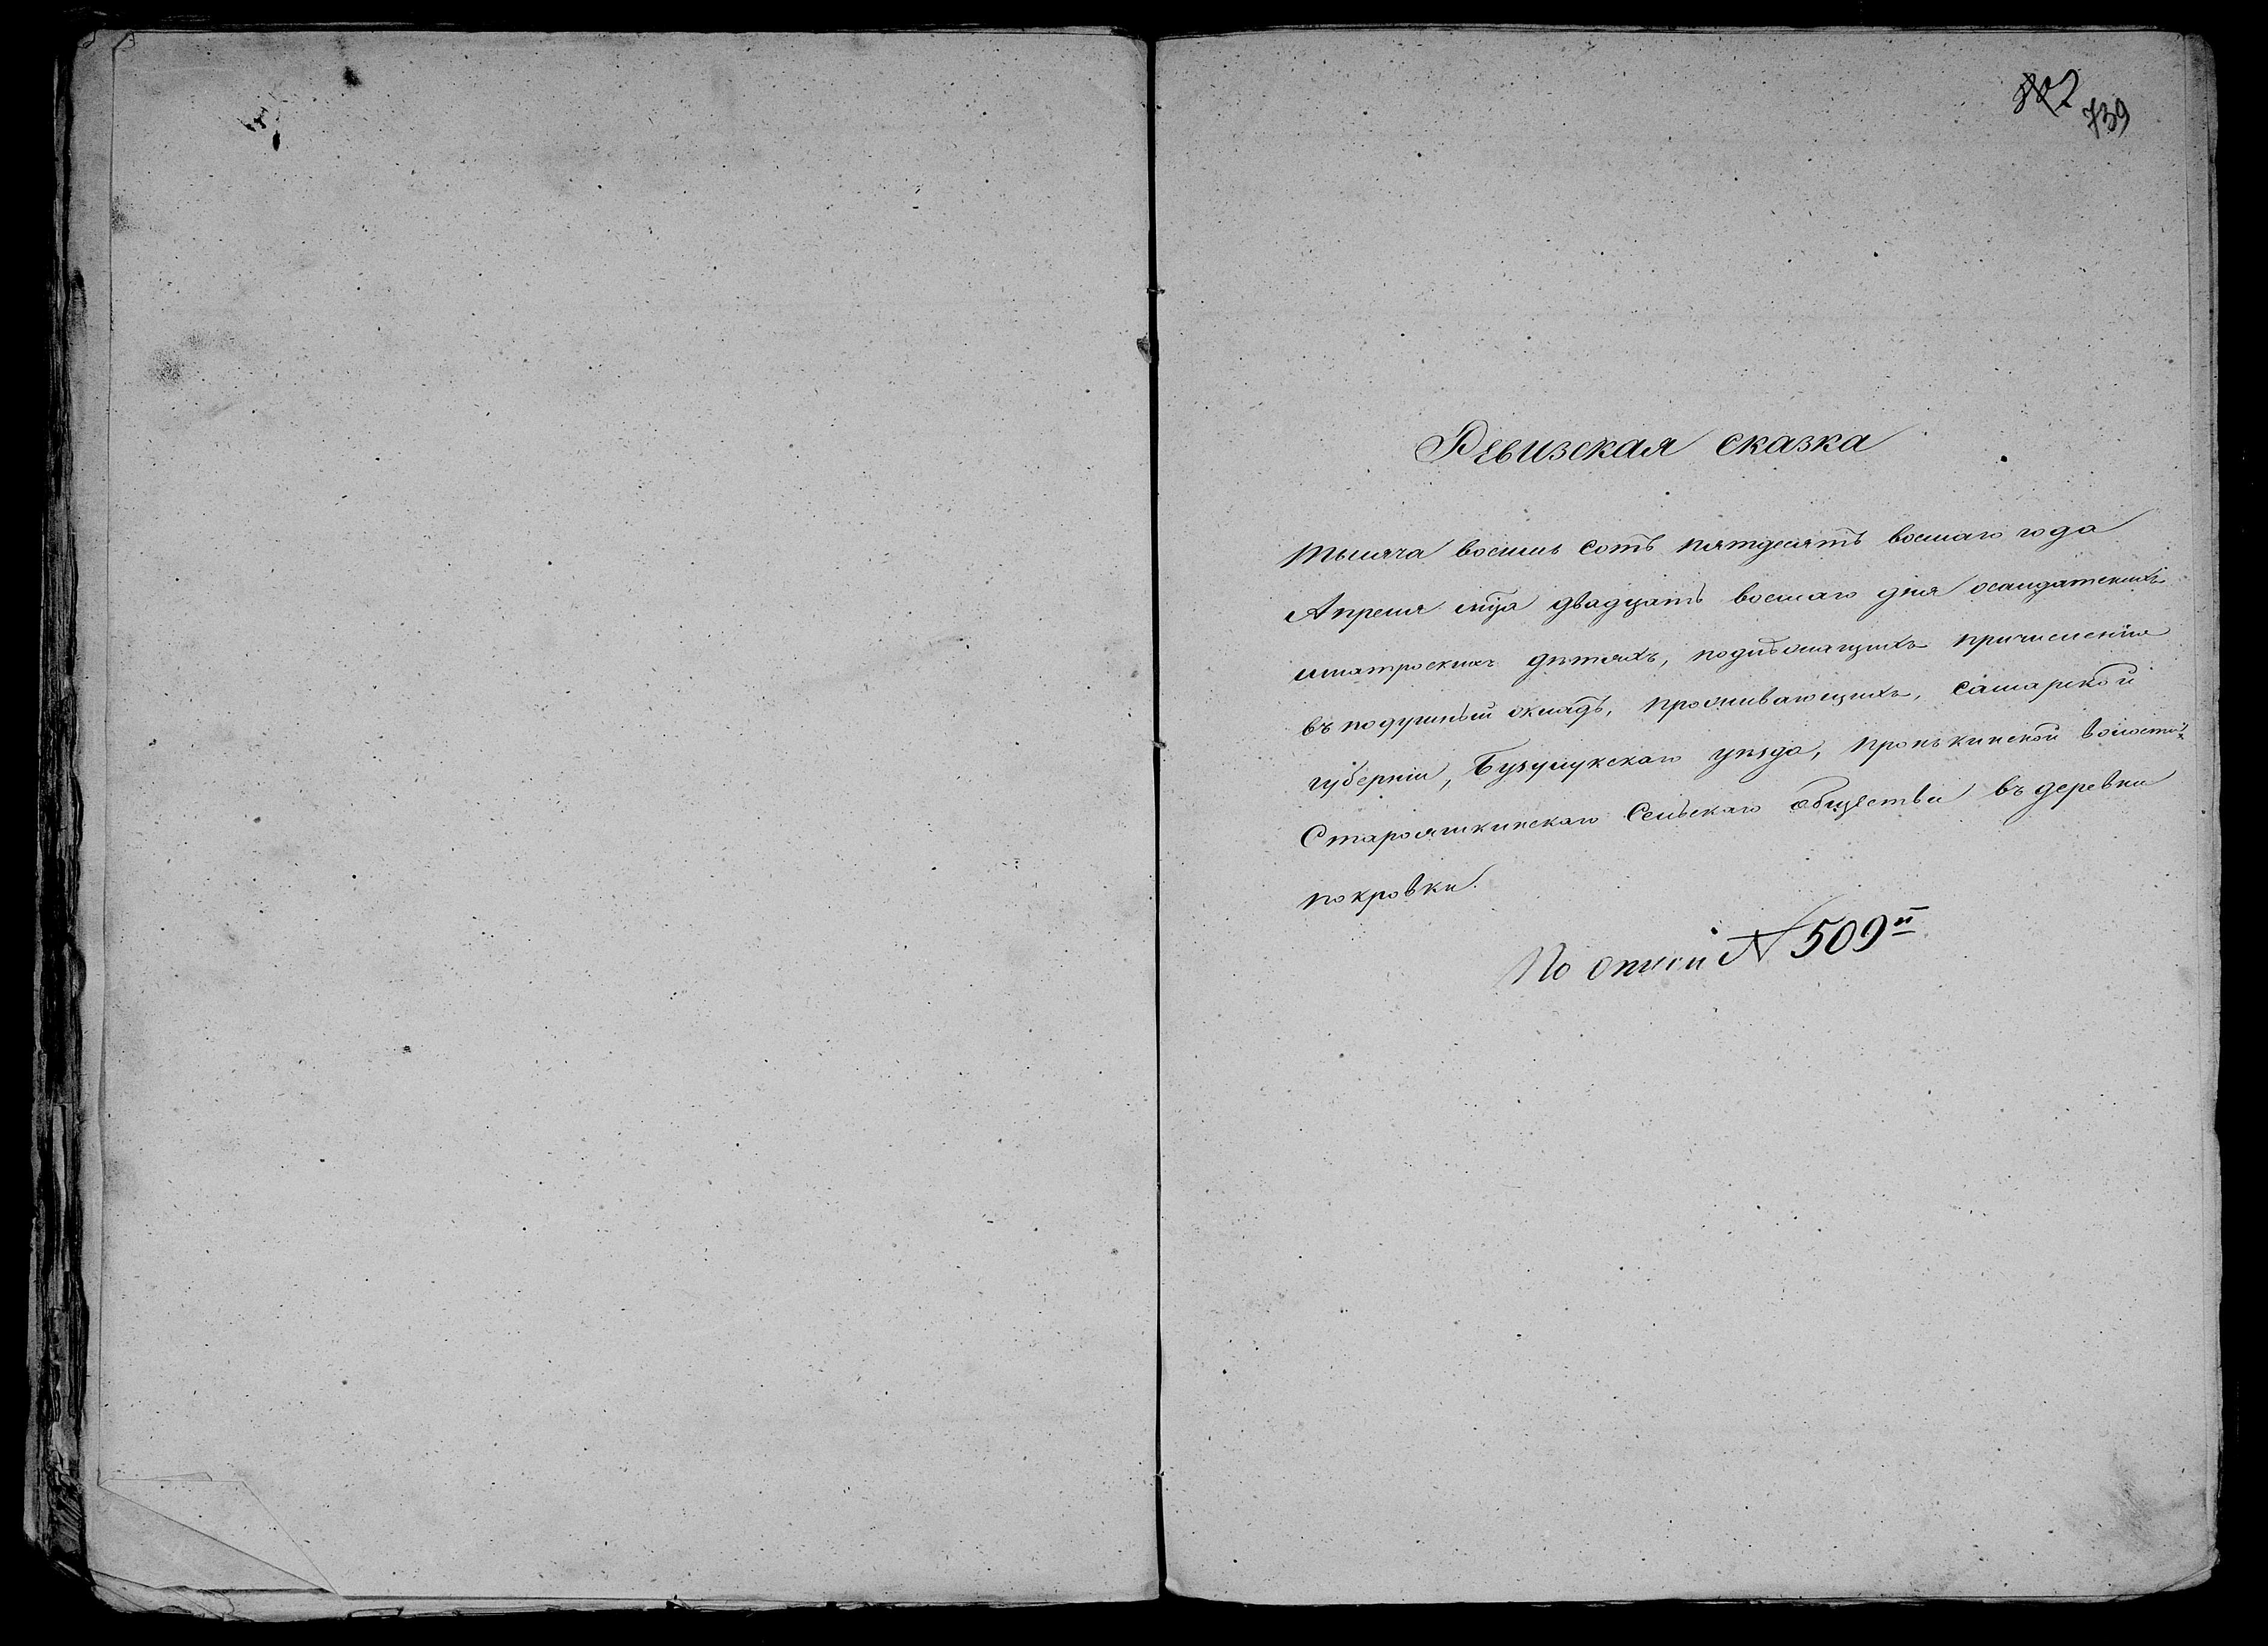 739
Ревизская сказка
Тысяча восемь сотъ пятдесятъ восмаго года
Апреля мца двадцать восмаго дня о солдатскихъ
матроскихъ дѣтяхъ, подлѣжащихъ причисленiю
въ подушный окладъ, проживающихъ, Самарской
губернiи, Бузулукскаго уѣзда, Пронькинской волости,
Старояшкинскаго Сельскаго общества въ деревни
покровки.
По описи № 509й